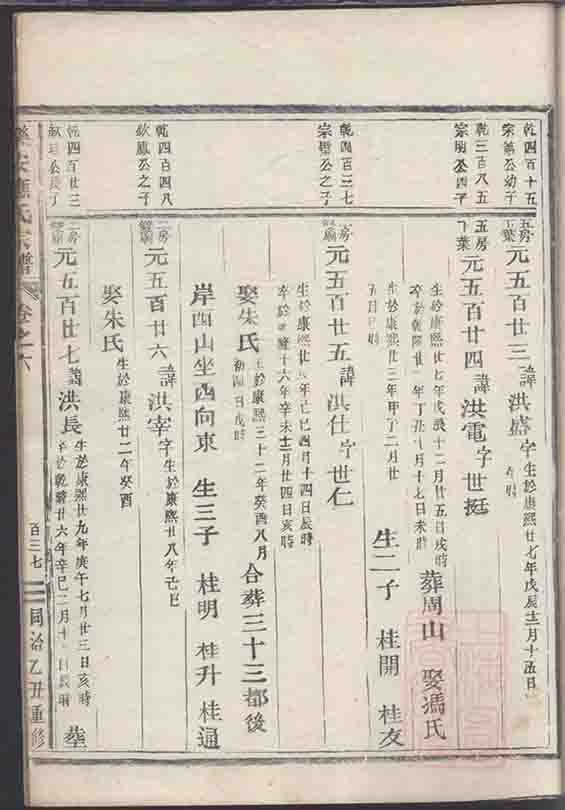 乾四百十五
宗 公幼子
五房
元五百廿三 諱洪盛 字
生於康熙廿七年戊辰十二月十五日
午時
乾三百八五
宗明公四子
五房
元五百廿四 諱洪電 字世挺
生於康熙廿七年戊辰十二月廿五日戌時
卒於乾隆廿 年丁丑八月十七日未時
葬周山 娶馮氏
生於康熙廿三年甲子二月廿
五月 時
生二子 桂開 桂友
乾四百三七
宗 公之子
房
元五百廿五 諱洪仕 字世仁
生於康熙廿八年己巳四月十四日辰時
卒於乾隆十六年辛未十二月廿四日亥時
娶朱氏
生於康熙三十二年癸酉八月
初四日戌時
合葬三十三都後
岸四山坐西向東 生三子 桂明 桂升 桂通
乾四百四八
欽鳳公之子
房
元五百廿六 諱洪宰 字
生於康熙廿八年己巳
娶朱氏
生於康熙廿二年癸酉
乾四百廿三
公長子
房
元五百廿七 諱洪長
生於康熙廿九年庚午七月廿三日亥時
卒於乾隆廿六年辛巳二月十 日辰時
葬
氏宗譜 卷之六
百三七
同治乙丑重修